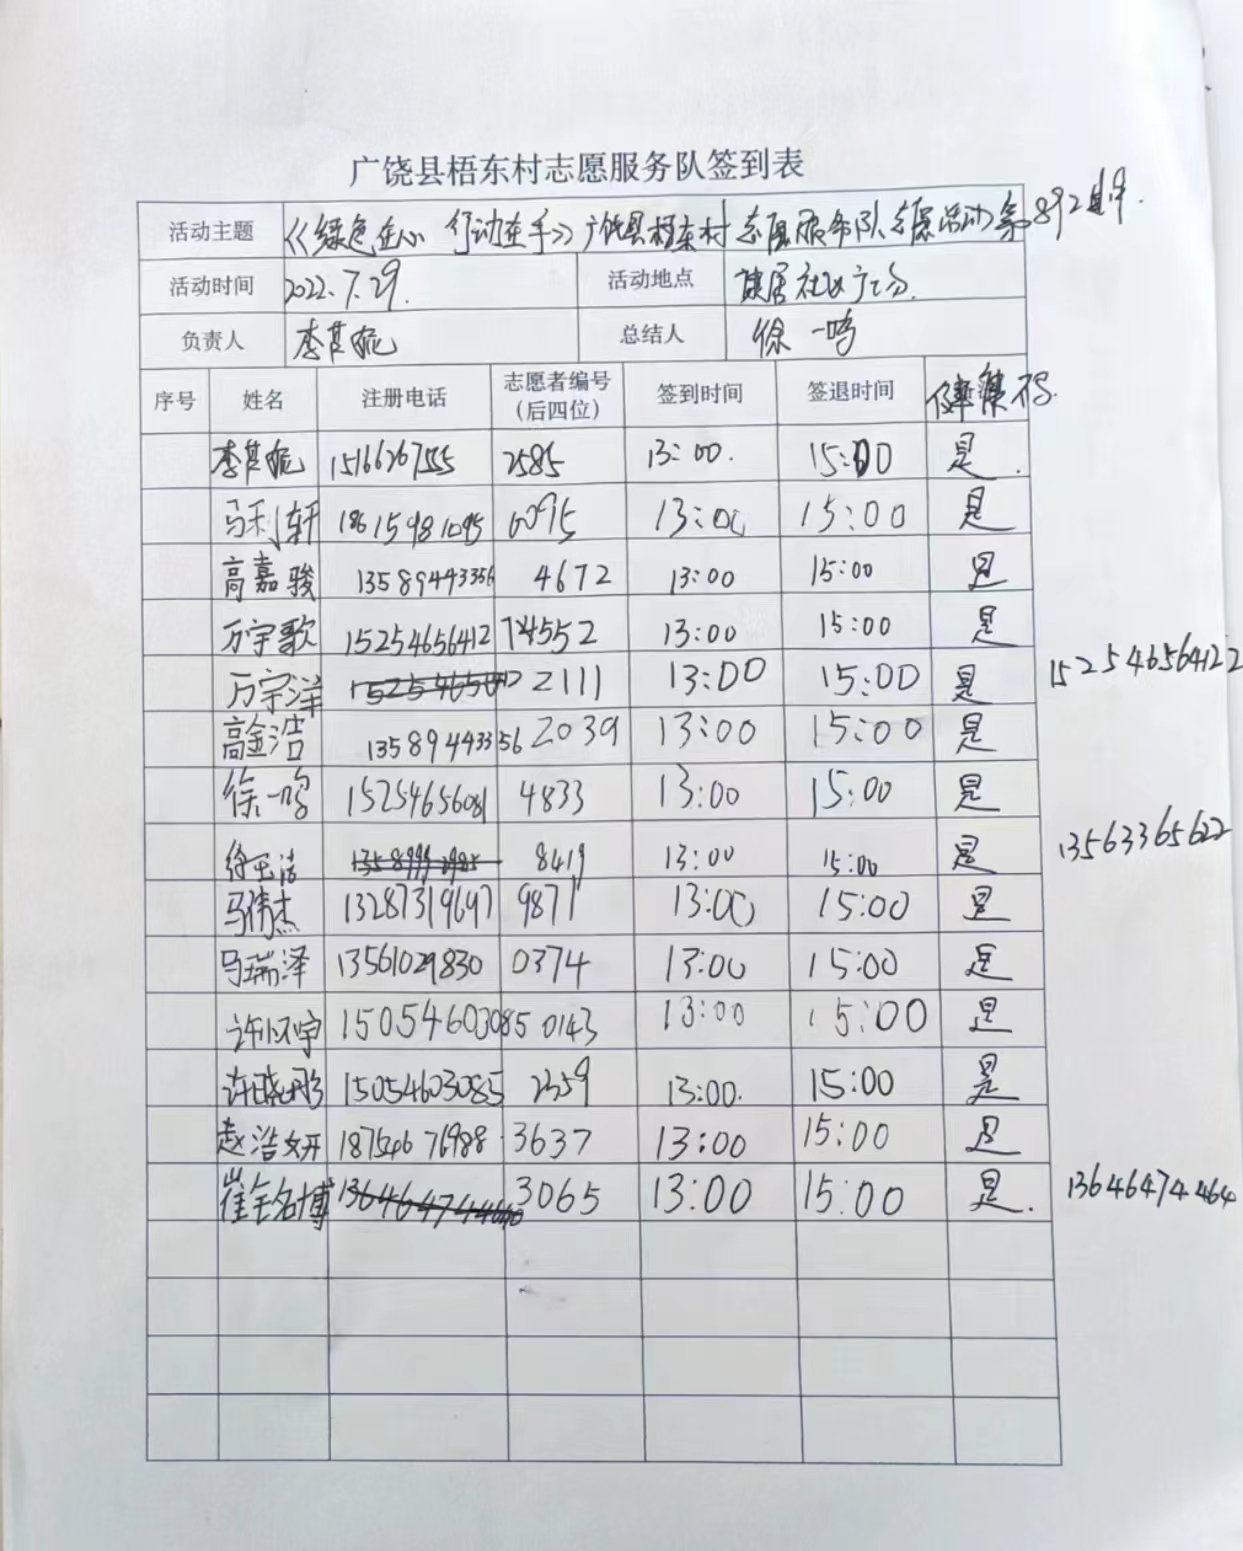 广饶县梧东村志愿服务队签到表
活动主题 《绿色在心 行动在手》广饶县梧东村志愿服务队志愿活动第892集中.
活动时间 2022.7.29. 活动地点 社区广场.
负责人 李 妮 总结人 徐一鸣
序号 姓名 注册电话 志愿者编号（后四位） 签到时间 签退时间 健康码.
李 妮 15166267555 2585 13:00. 15:00 是.
马利轩 18615981095 0095 13:00 15:00 是
高嘉骏 13589443356 4672 13:00 15:00 是
万宇歌 15254656412 4552 13:00 15:00 是
万宇洋 2111 13:00 15:00 是 152546564122
高金浩 13589443356 2039 13:00 15:00 是
徐一鸣 15254656081 4833 13:00 15:00 是
徐玉洁 8419 13:00 15:00 是 13563365622
马伟杰 13287319697 9871 13:00 15:00 是
马瑞泽 13561029830 0374 13:00 15:00 是
许怀宇 15054603085 0143 13:00 15:00 是
许晓彤 15054603085 2359 13:00. 15:00 是
赵浩妍 18754676988 3637 13:00 15:00 是
崔铭博 3065 13:00 15:00 是. 13646474464